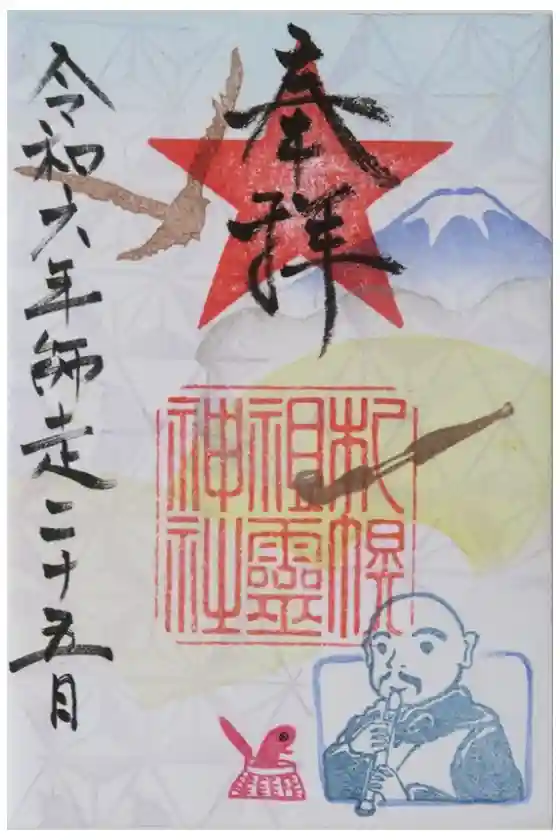 奉拝
札幌
祖霊
神社
令和六年師走二十五日